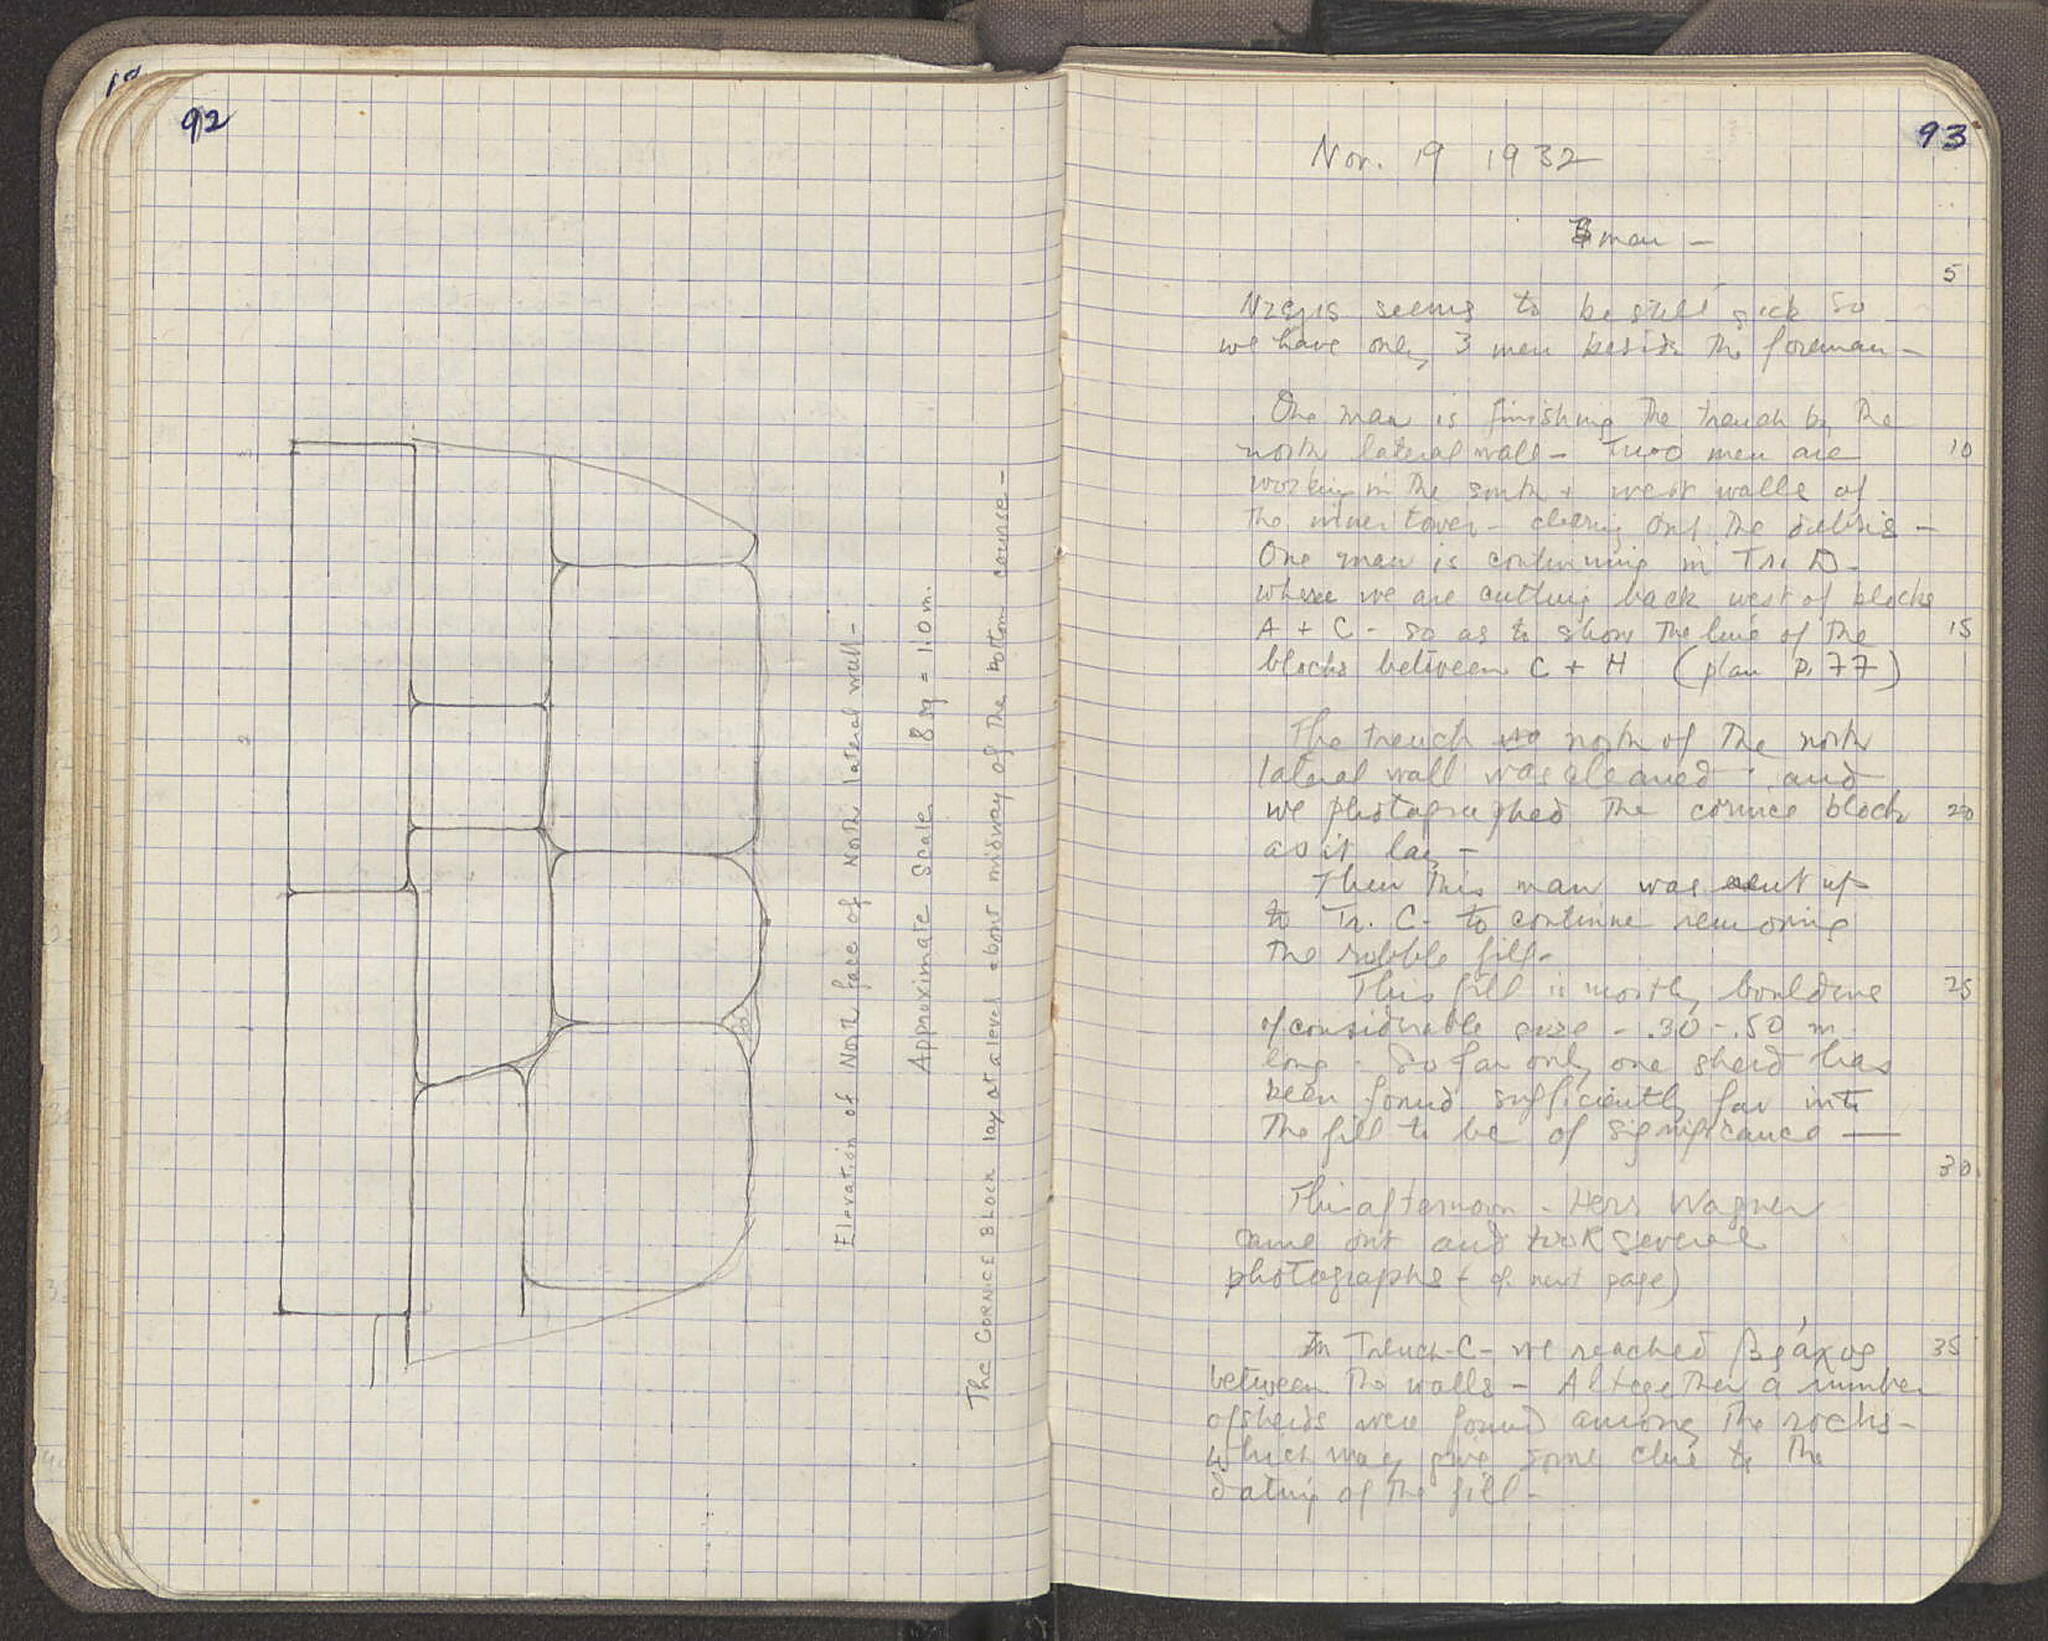 92
Elevation of North face of North lateral wall -
Approximate Scale 8 sq = 1.0 m.
The CORNICE BLOCK lay at a level about midway of the bottom course -
93
Nov. 19 1932
men -
5
seems to be still sick so
we have only 3 men beside the foreman -
One man is finishing the trench by the
north lateral wall - Two men are
10
working in the south + west walls of
the inner tower - clearing out the debris -
One man is continuing in Tr. D -
where we are cutting back west of blocks
A + C - so as to show the line of the
15
blocks between C + H (plan p. 77)
The trench north of the north
lateral wall was cleaned and
we photographed the cornice block
20
as it lay -
Then this man was sent up
to Tr. C - to continue removing
the rubble fill -
This fill is mostly
25
of considerable size - .30 - .50 m
long - So far only one sherd has
been found sufficiently far into
the fill to be of significance —
30
This afternoon - Herr Wagner
came out and took several
photographs (cf. next page)
In Trench - C - we reached βράχος
35
between the walls - Altogether a number
of sherds were found among the rocks -
which may give some clue to the
dating of the fill -